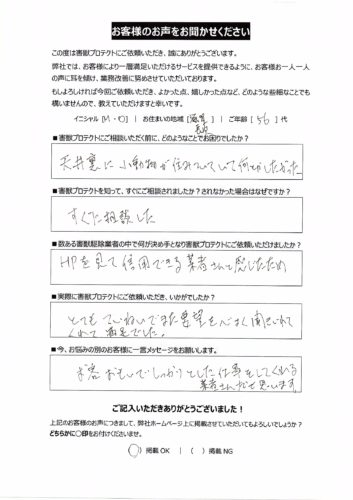 お客様のお声をお聞かせください
この度は害獣プロテクトにご依頼いただき、誠にありがとうございます。
弊社では、お客様により一層満足いただけるサービスを提供できるように、お客様お一人お一人
の声に耳を傾け、業務改善に努めさせていただいております。
もしよろしければ今回ご依頼いただき、よかった点、嬉しかった点など、どのような些細なことでも
構いませんので、教えていただけますと幸いです。
イニシャル [M・O] | お住まいの地域 [ ] | ご年齢 ( 56 ) 代
■害獣プロテクトにご相談いただく前に、どのようなことでお困りでしたか?
天井裏に小動物が住みついていて何とかしたかった
■害獣プロテクトを知って、すぐにご相談されましたか?されなかった場合はなぜですか?
すぐに相談した
■数ある害獣駆除業者の中で何が決め手となり害獣プロテクトにご依頼いただけましたか?
HPを見て信用できる業者さんと感じたため
■実際に害獣プロテクトにご依頼いただき、いかがでしたか?
とてもていねいでまた要望をよく聞き入れて
くれて満足でした。
■今、お悩みの別のお客様に一言メッセージをお願いします。
お客おもいでしっかりとした仕事をしてくれる
業者さんだと思います。
ご記入いただきありがとうございました!
上記のお客様のお声につきまして、弊社ホームページ上に掲載させていただいてもよろしいでしょうか?
どちらかに○印をお付けくださいませ。
(○) 掲載 OK | ( ) 掲載 NG